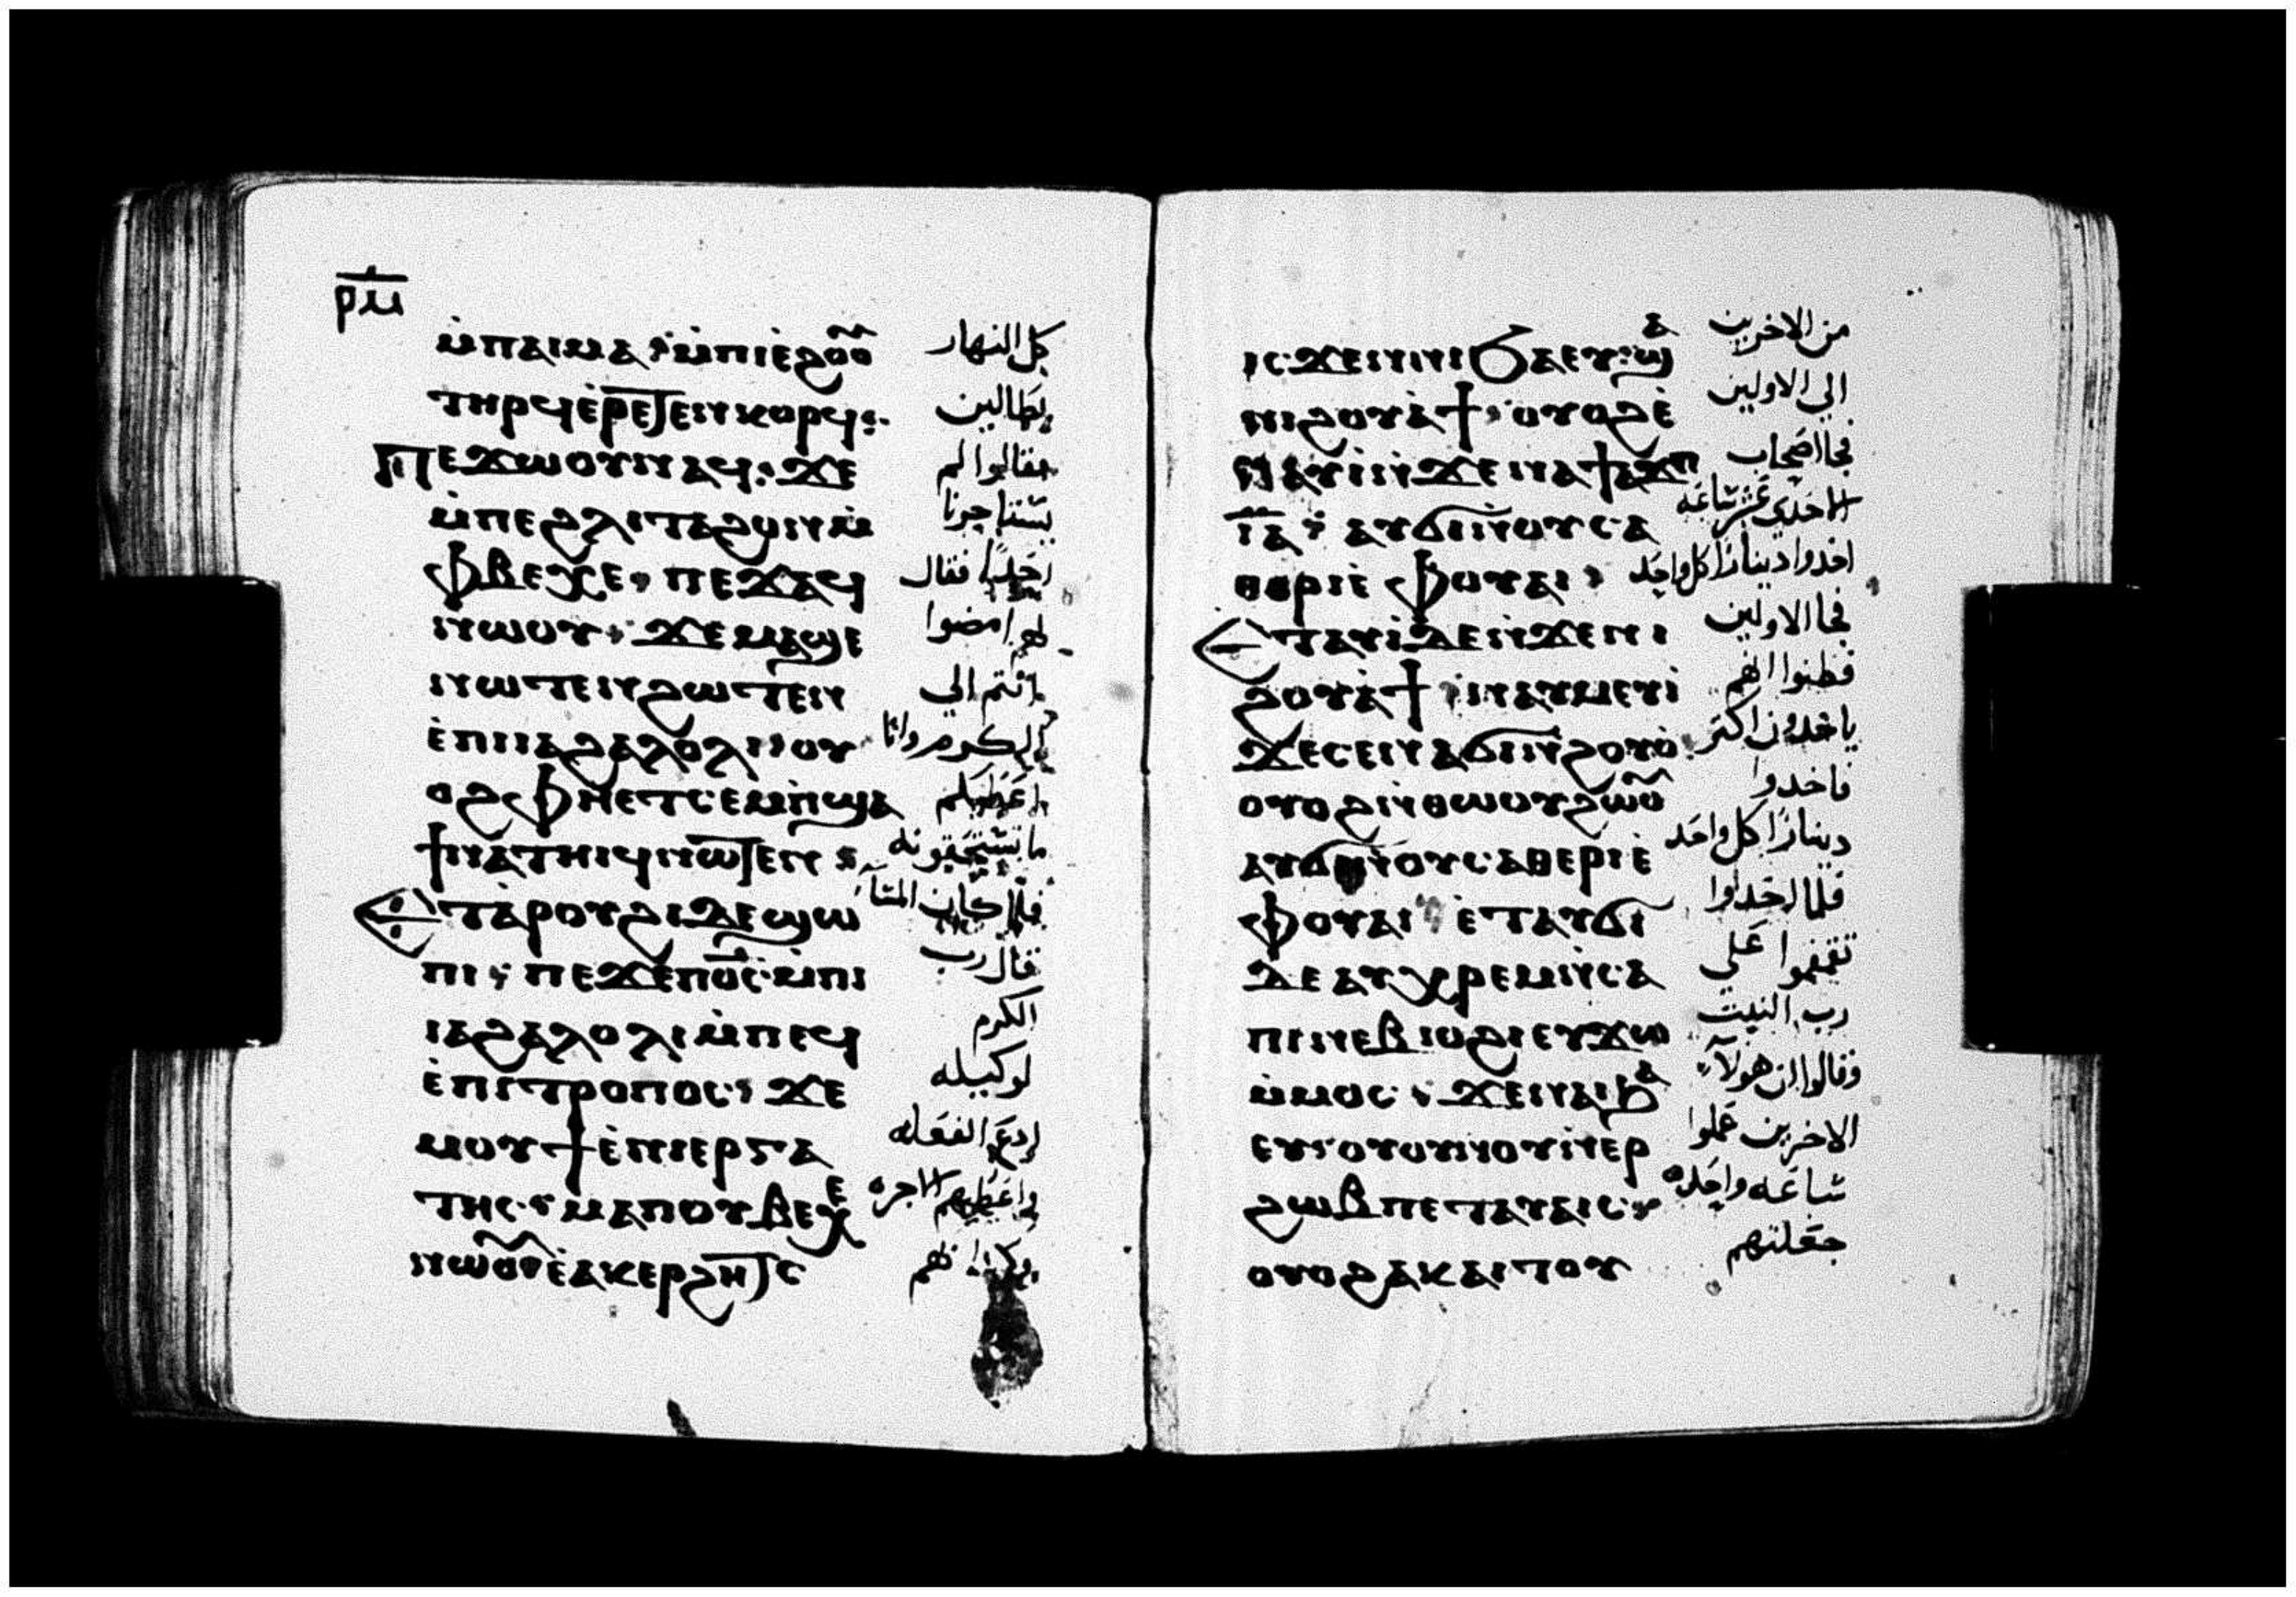 ⲣ̅ⲙ̅
ⲙ̀ⲡⲁⲓⲙⲁ ⲙ̀ⲡⲓⲉ̀ϩⲟⲟ
ⲧⲏⲣϥ ⲉ̀ⲣⲉⲧⲉⲛⲕⲟⲣϥ:·
ⲡⲉϫⲱⲟⲩ ⲛⲁϥ: ϫⲉ
ⲙ̀ⲡⲉϩⲗⲓ ⲧⲁϩⲟⲛ ⲙ̀
ⲫⲃⲉⲭⲉ ⲡⲉϫⲁϥ
ⲛⲱⲟⲩ ϫⲉ ⲙⲁϣⲉ
ⲛⲱⲧⲉⲛ ϩⲱⲧⲉⲛ
ⲉ̀ⲡⲓⲓⲁϩⲁⲗⲟⲗⲓ ⲟⲩ
ⲟϩ ⲫⲏ ⲉⲧⲥⲉⲙⲡ̀ϣⲁ
ϯⲛⲁⲧⲏⲓϥ ⲛⲱⲧⲉⲛ
ⲉⲧⲁ̀ⲣⲟⲩϩⲓ ⲇⲉ ϣⲱ
ⲡⲓ ⲡⲉϫⲉ ⲡⲟ̅ⲥ̅ ⲙ̀ⲡⲓ
ⲓⲁϩⲁⲗⲟⲗⲓ ⲙ̀ⲡⲉϥ
ⲉ̀ⲡⲓⲧⲣⲟⲡⲟⲥ ϫⲉ
ⲙⲟⲩϯ ⲉ̀ⲛⲓⲉⲣⲅⲁ
ⲧⲏⲥ ⲙⲁ ⲡⲟⲩⲃⲉⲭⲉ
ⲛⲱⲟⲩ ⲉ̀ⲁⲕⲉⲣϩⲏⲧⲥ
كل النهار
بطالين
فقالوا لم
يستاجرنا
احدا فقال
لهم امضوا
انتم الي
الكرم وانا
اعطيكم
ما تستحقونه
فلما كان المسا
قال رب
الكرم
لوكيله
ادع الفعله
واعطيهم الاجره
ⲓⲥϫⲉⲛ ⲛⲓϧⲁⲉⲩ ϣⲁ
ⲛⲓϩⲟⲩⲁ̀ϯ ⲟⲩⲟϩ ⲉ̀
ⲧⲁⲩⲓ̀ ⲛ̀ϫⲉ ⲛⲁ ϯⲁϫⲡ
ⲓ̅ⲁ̅ ⲁⲩϭⲓ ⲛ̀ⲟⲩⲥⲁ
ⲑⲉⲣⲓⲉ̀ ⲫⲟⲩⲁⲓ
ⲉⲧⲁⲩⲓ̀ ⲇⲉ ⲛ̀ϫⲉ ⲛⲓ
ϩⲟⲩⲁ̀ϯ ⲛⲁⲩⲙⲉⲩⲓ̀
ϫⲉ ⲥⲉⲛⲁϭⲓ ⲛ̀ϩⲟⲩⲟ̀
ⲟⲩⲟϩ ⲛ̀ⲑⲱⲟⲩ ϩⲱⲟⲩ
ⲁⲩϭⲓ ⲛ̀ⲟⲩⲥⲁⲑⲉⲣⲓⲉ̀
ⲫⲟⲩⲁⲓ ⲉ̀ⲧⲁⲩϭⲓ
ⲇⲉ ⲁⲩⲭⲣⲉⲙⲣⲉⲙ ⲛ̀ⲥⲁ
ⲡⲓⲛⲉⲃⲓⲟϩⲓ ⲉⲩϫⲱ
ⲙ̀ⲙⲟⲥ ϫⲉ ⲛⲁⲓϧⲁ
ⲉⲩ ⲟⲩⲟⲩⲛⲟⲩ ⲛ̀ⲉⲣ
ϩⲱⲃ ⲡⲉⲧⲁⲩⲁⲓⲥ
ⲟⲩⲟϩ ⲁⲕⲁⲓⲧⲟⲩ
من الاخرين
الي الاولين
فجا اصحاب
الاحدي عشر ساعه
اخدوا دينارا كل واحد
فجا الاولين
فظنوا انهم
ياخدون اكتر
فاخدوا
دينارا كل واحد
فلما اخدوا
تقمقموا علي
رب البيت
وقالوا ان هولآ
الاخرين عملوا
ساعه واحده
جعلتهم